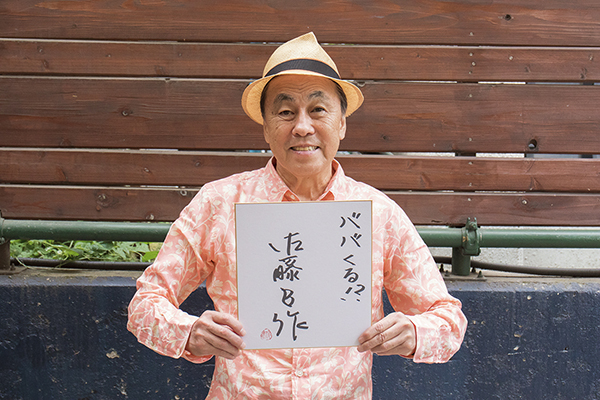 ババくる!?
佐藤B作